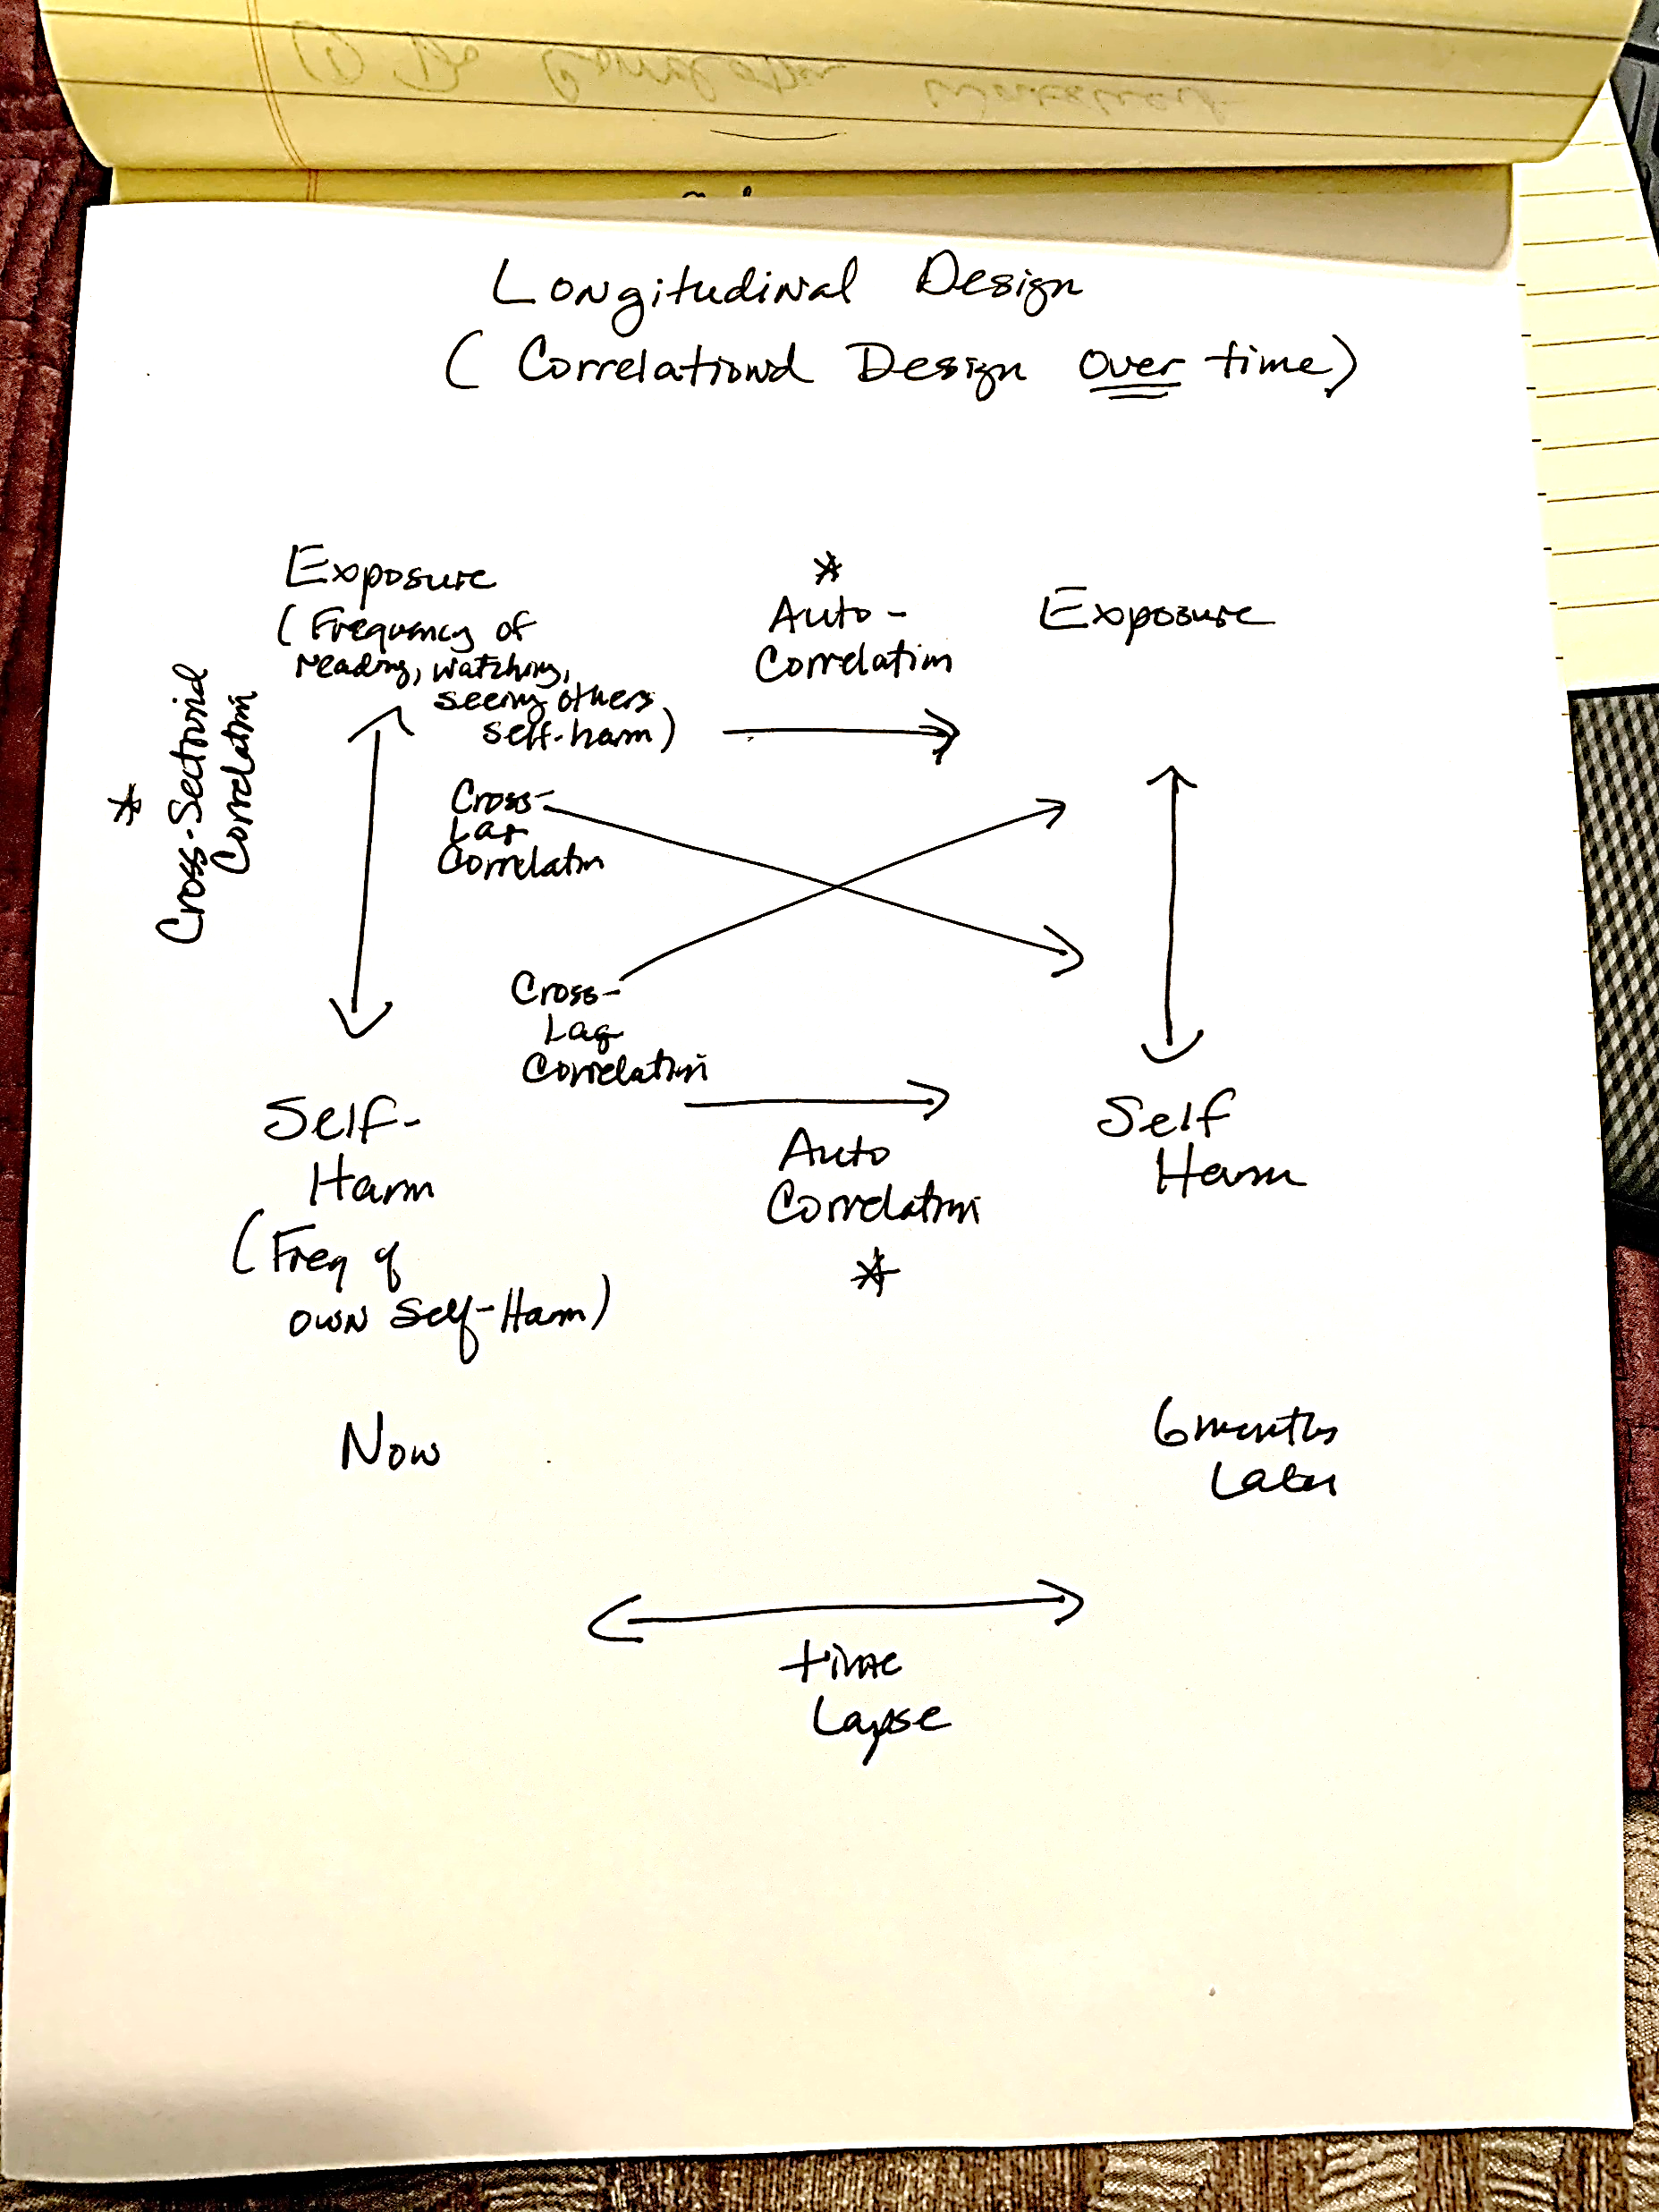 Longitudinal Design
(Correlational Design Over time)
Exposure
(Frequency of
reading, watching,
seeing others
self-harm)
*
Auto-
Correlation
Exposure
*
Cross-Sectional
Correlation
Cross-
Lag
Correlation
Cross-
Lag
Correlation
Self-
Harm
(Freq of
own Self-Harm)
Auto
Correlation
*
Self
Harm
Now
6 months
Later
time
Lapse